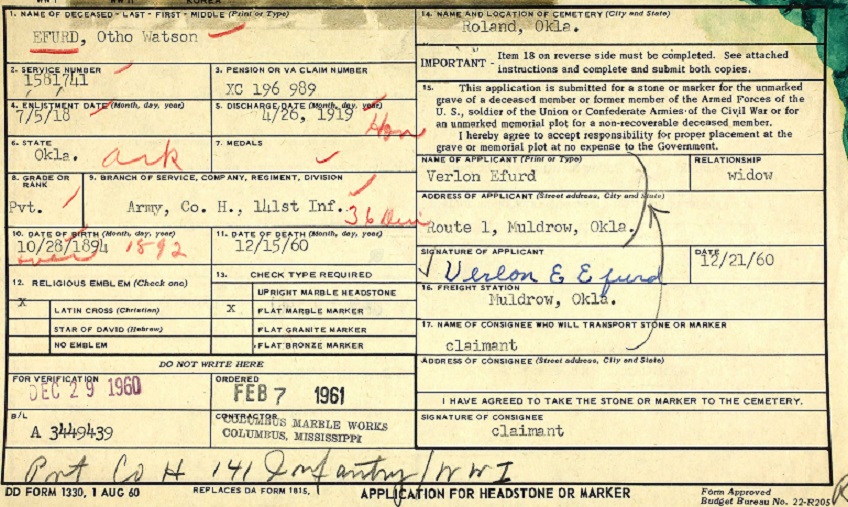 KOREA
1. NAME OF DECEASED - LAST - FIRST - MIDDLE (Print or Type)
EFURD, Otho Watson
2. SERVICE NUMBER
1581741
3. PENSION OR VA CLAIM NUMBER
XC 196 989
4. ENLISTMENT DATE (Month, day, year)
7/5/18
5. DISCHARGE DATE (Month, day, year)
4/26, 1919
Hon
6. STATE
Okla. ark
7. MEDALS
8. GRADE OR RANK
Pvt.
9. BRANCH OF SERVICE, COMPANY, REGIMENT, DIVISION
Army, Co. H., 141st Inf. 36 Div
10. DATE OF BIRTH (Month, day, year)
10/28/1894 1892
11. DATE OF DEATH (Month, day, year)
12/15/60
12. RELIGIOUS EMBLEM (Check one)
X
LATIN CROSS (Christian)
STAR OF DAVID (Hebrew)
NO EMBLEM
13. CHECK TYPE REQUIRED
UPRIGHT MARBLE HEADSTONE
X FLAT MARBLE MARKER
FLAT GRANITE MARKER
FLAT BRONZE MARKER
DO NOT WRITE HERE
FOR VERIFICATION
DEC 29 1960
ORDERED
FEB 7 1961
B/L
A 3449439
CONTRACTOR
COLUMBUS MARBLE WORKS
COLUMBUS, MISSISSIPPI
14. NAME AND LOCATION OF CEMETERY (City and State)
Roland, Okla.
IMPORTANT - Item 18 on reverse side must be completed. See attached
instructions and complete and submit both copies.
15. This application is submitted for a stone or marker for the unmarked
grave of a deceased member or former member of the Armed Forces of the
U. S., soldier of the Union or Confederate Armies of the Civil War or for
an unmarked memorial plot for a non-recoverable deceased member.
I hereby agree to accept responsibility for proper placement at the
grave or memorial plot at no expense to the Government.
NAME OF APPLICANT (Print or Type)
Verlon Efurd
RELATIONSHIP
widow
ADDRESS OF APPLICANT (Street address, City and State)
Route 1, Muldrow, Okla.
SIGNATURE OF APPLICANT
Verlon E Efurd
DATE
12/21/60
16. FREIGHT STATION
Muldrow, Okla.
17. NAME OF CONSIGNEE WHO WILL TRANSPORT STONE OR MARKER
claimant
ADDRESS OF CONSIGNEE (Street address, City and State)
I HAVE AGREED TO TAKE THE STONE OR MARKER TO THE CEMETERY.
SIGNATURE OF CONSIGNEE
claimant
Pvt Co H 141 Infantry/WWI
DD FORM 1330, 1 AUG 60
REPLACES DA FORM 1815,
APPLICATION FOR HEADSTONE OR MARKER
Form Approved
Budget Bureau No. 22-R205